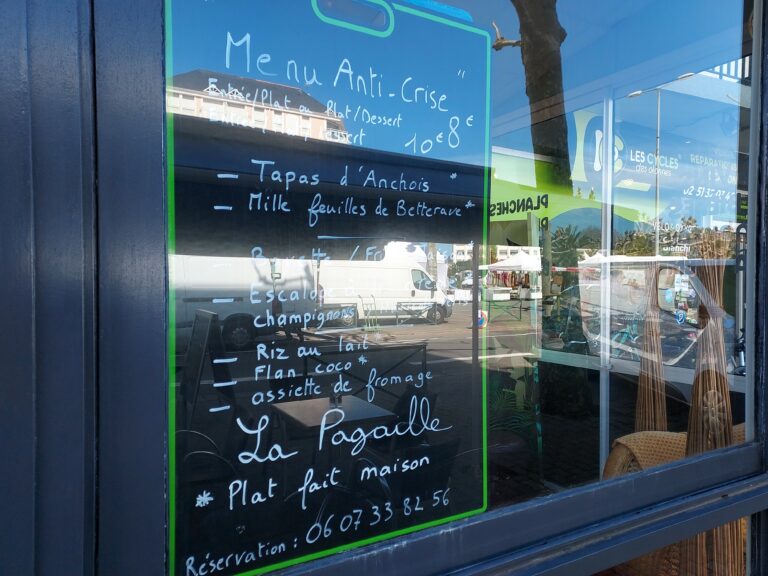 Menu Anti-Crise "
Entrée/Plat ou Plat/Dessert 8€
10€
- Tapas d'Anchois *
- Mille feuilles de Betterave *
- Escalope
champignons
- Riz au lait
- Flan coco *
- assiette de fromage
La Pagaille
* Plat fait maison
Réservation : 06 07 33 82 56
PLANCHES
LES CYCLES
des olonnes